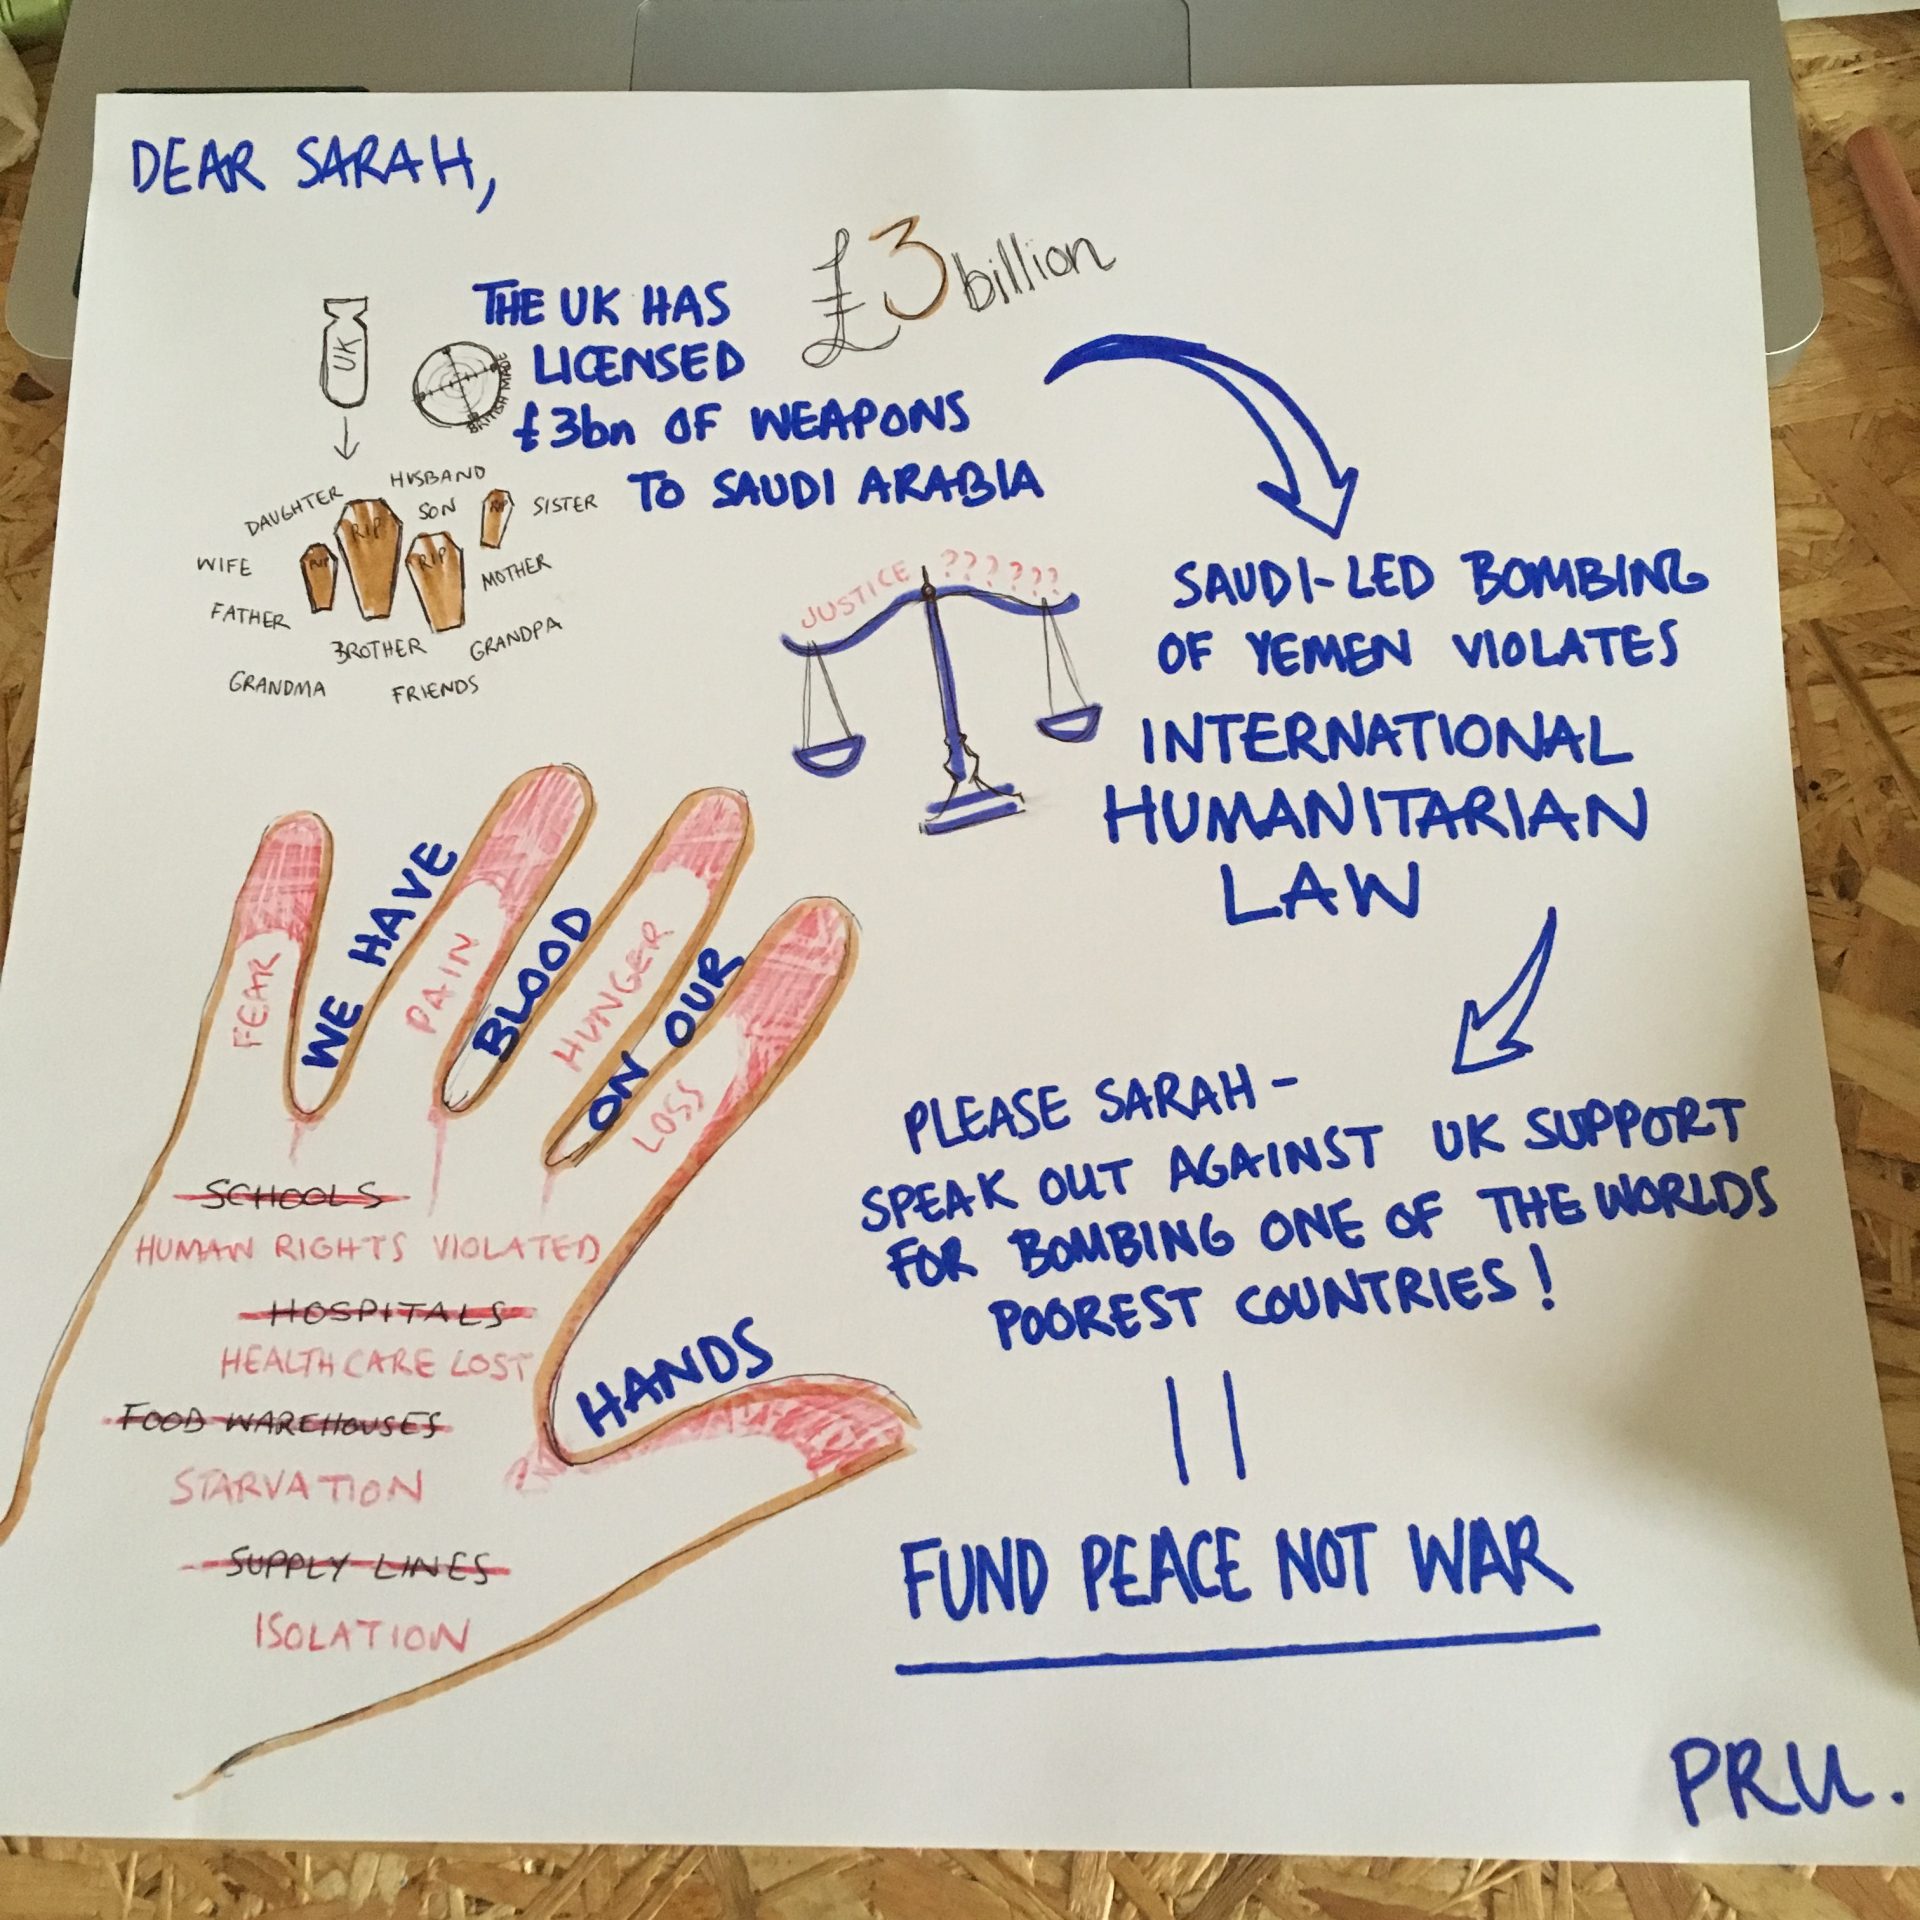 DEAR SARAH,
£3 billion
THE UK HAS
LICENSED
£3bn OF WEAPONS
TO SAUDI ARABIA
UK
BRITISH MADE
HUSBAND
DAUGHTER
SON
SISTER
RIP
RIP
RIP
RIP
WIFE
MOTHER
FATHER
BROTHER
GRANDPA
GRANDMA
FRIENDS
JUSTICE ??????
SAUDI-LED BOMBING
OF YEMEN VIOLATES
INTERNATIONAL
HUMANITARIAN
LAW
WE HAVE
BLOOD
ON OUR
HANDS
FEAR
PAIN
HUNGER
LOSS
SCHOOLS
HUMAN RIGHTS VIOLATED
HOSPITALS
HEALTHCARE LOST
FOOD WAREHOUSES
STARVATION
SUPPLY LINES
ISOLATION
PLEASE SARAH -
SPEAK OUT AGAINST UK SUPPORT
FOR BOMBING ONE OF THE WORLDS
POOREST COUNTRIES!
FUND PEACE NOT WAR
PRU.